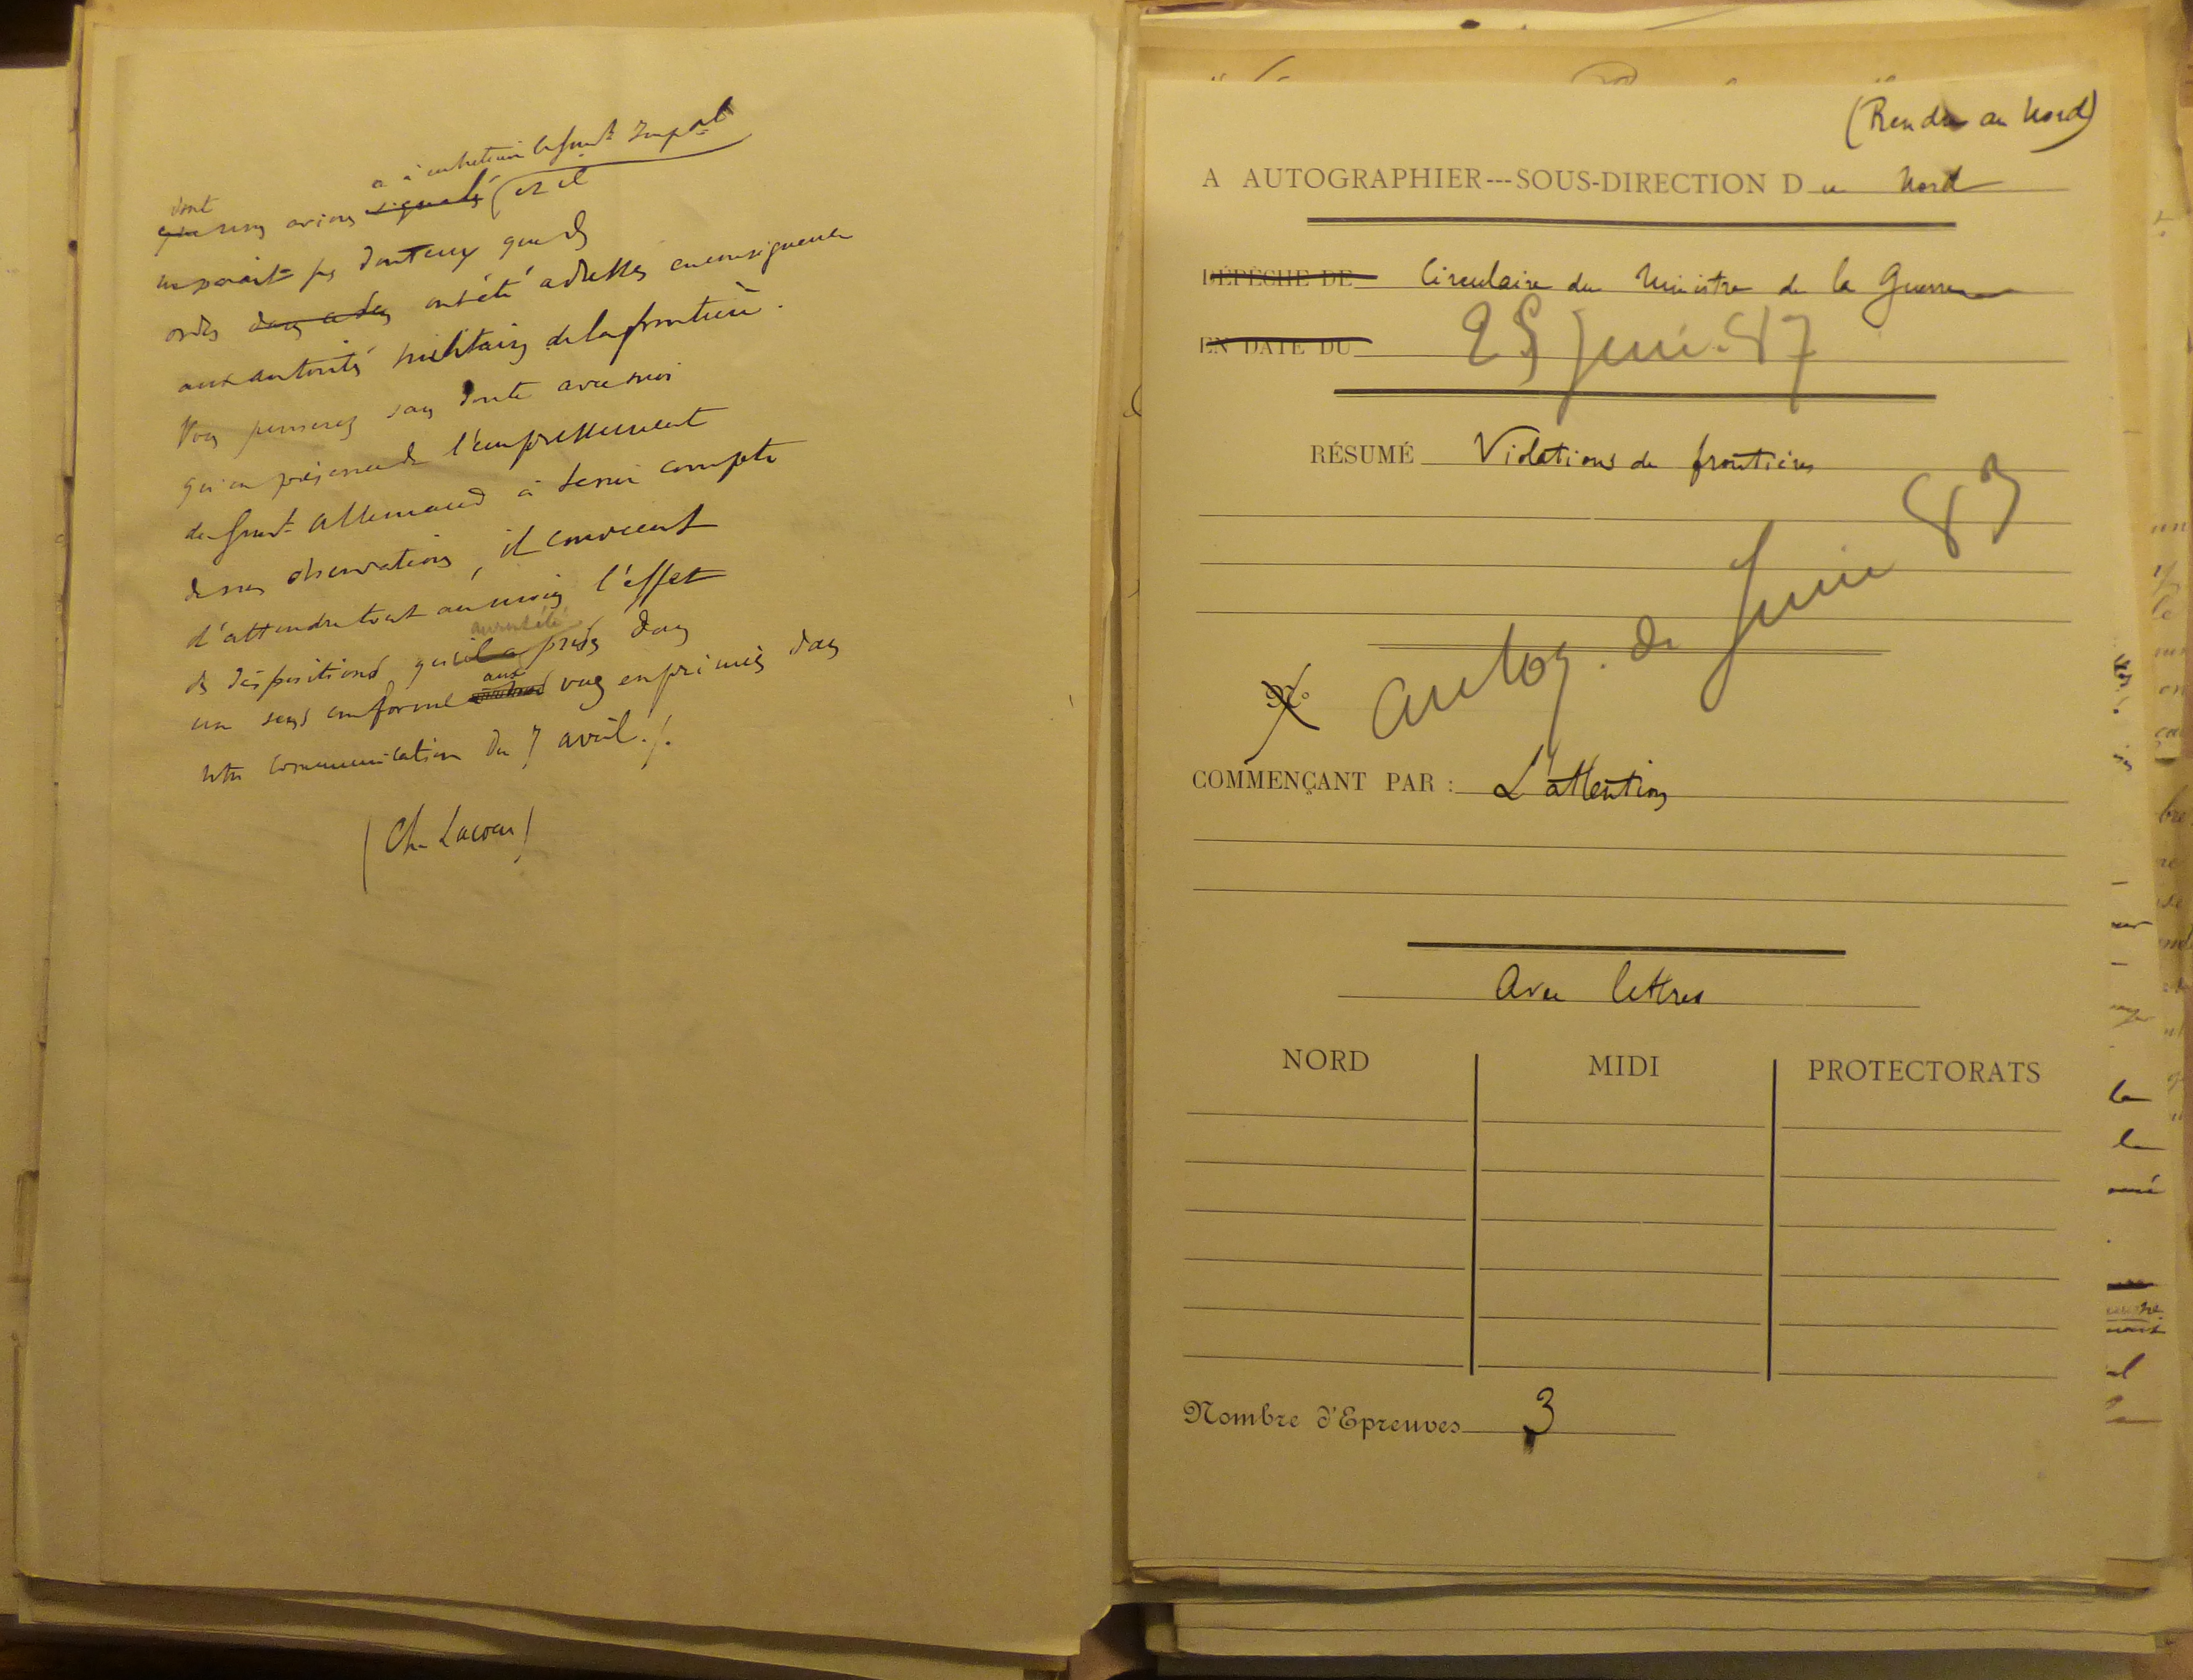 a à entretenir le Gouvt Impal
dont
que nous avions signalés et il
me parait pas douteux que des
ordres dans ce sens ont été adressés en conséquence
aux autorités militaires de la frontière.
Vous penserez sans doute avec moi
qu'en présence de l'empressement
du Gouvt Allemand à tenir compte
de nos observations, il convient
d'attendre tout au moins l'effet
auront été
des dispositions qu'il a prises dans
aux
un sens conforme vues exprimées dans
notre communication du 7 avril ./.
(Ch. Lacour)
(Rendre au Nord)
A AUTOGRAPHIER---SOUS-DIRECTION Du Nord
DÉPÊCHE DE Circulaire du Ministre de la Guerre
EN DATE DU 25 Juin 87
RÉSUMÉ Violations de frontières
autog. de Juin 83
N°
COMMENÇANT PAR : L'attention
Avec lettres
NORD
MIDI
PROTECTORATS
Nombre d'Epreuves 3